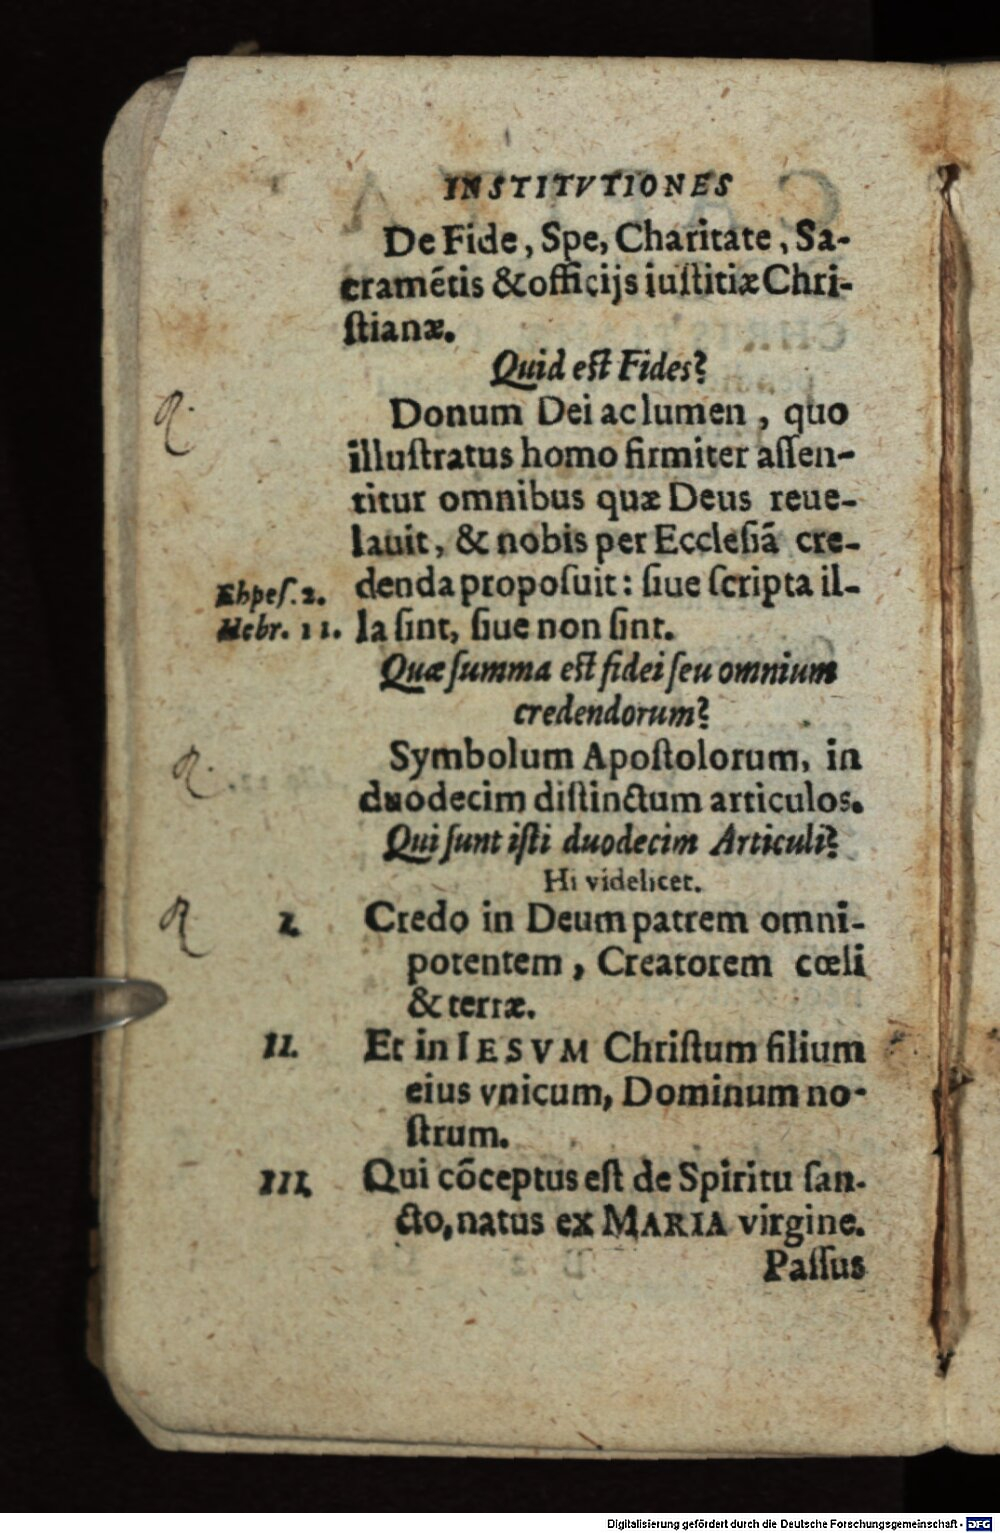 INSTITVTIONES
De Fide, Spe, Charitate, Sa-
cramẽtis & officijs iustitiæ Chri-
stianæ.
Quid est Fides?
Donum Dei ac lumen, quo
illustratus homo firmiter assen-
titur omnibus quæ Deus reue-
lauit, & nobis per Ecclesiã cre-
Ehpes. 2. denda proposuit: siue scripta il-
Hebr. 11. la sint, siue non sint.
Quæ summa est fidei seu omnium
credendorum?
Symbolum Apostolorum, in
duodecim distinctum articulos.
Qui sunt isti duodecim Articuli?
Hi videlicet.
I. Credo in Deum patrem omni-
potentem, Creatorem cœli
& terræ.
II. Et in IESVM Christum filium
eius vnicum, Dominum no-
strum.
III. Qui cõceptus est de Spiritu san-
cto, natus ex MARIA virgine.
Passus
Digitalisierung gefördert durch die Deutsche Forschungsgemeinschaft - DFG